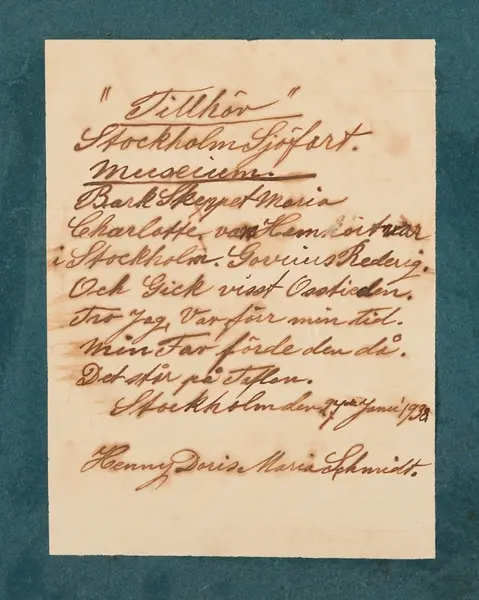 " Tillhör "
Stockholm Sjöfart.
Museium.
Bark Skeppet Maria
Charlotte, van Hem. ort var
i Stockholm. Govenius Rederig.
Och Gick visst Osstieden.
Tro Jag, Var förr min tid.
min Far förde den då.
Det står på Taflan.
Stockholm den Januari 1938
Henny Doris Maria Schmidt.